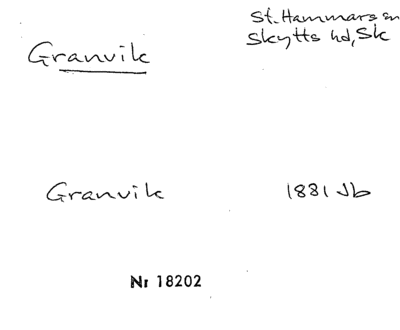 St. Hammars sn
Granvik
Skytts hd, Sk
Granvik
1881 Jb
Nr 18202